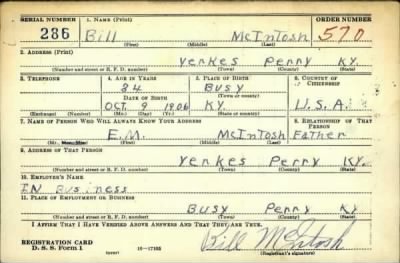 SERIAL NUMBER 1. NAME (Print) ORDER NUMBER
286 Bill McIntosh 570
(First) (Middle) (Last)
2. ADDRESS (Print)
Yerkes Perry KY.
(Number and street or R. F. D. number) (Town) (County) (State)
3. TELEPHONE 4. AGE IN YEARS 5. PLACE OF BIRTH 6. COUNTRY OF CITIZENSHIP
34 Busy
DATE OF BIRTH (Town or county)
OCT 9 1906 KY. U.S.A.
(Exchange) (Number) (Mo.) (Day) (Yr.) (State or country)
7. NAME OF PERSON WHO WILL ALWAYS KNOW YOUR ADDRESS 8. RELATIONSHIP OF THAT PERSON
E.M. McIntosh Father
(First) (Middle) (Last)
9. ADDRESS OF THAT PERSON
Yerkes Perry KY.
(Number and street or R. F. D. number) (Town) (County) (State)
10. EMPLOYER'S NAME
IN Business
11. PLACE OF EMPLOYMENT OR BUSINESS
Busy Perry KY
(Number and street or R. F. D. number) (Town) (County) (State)
I AFFIRM THAT I HAVE VERIFIED ABOVE ANSWERS AND THAT THEY ARE TRUE.
REGISTRATION CARD
D. S. S. Form 1 16—17105 Bill McIntosh